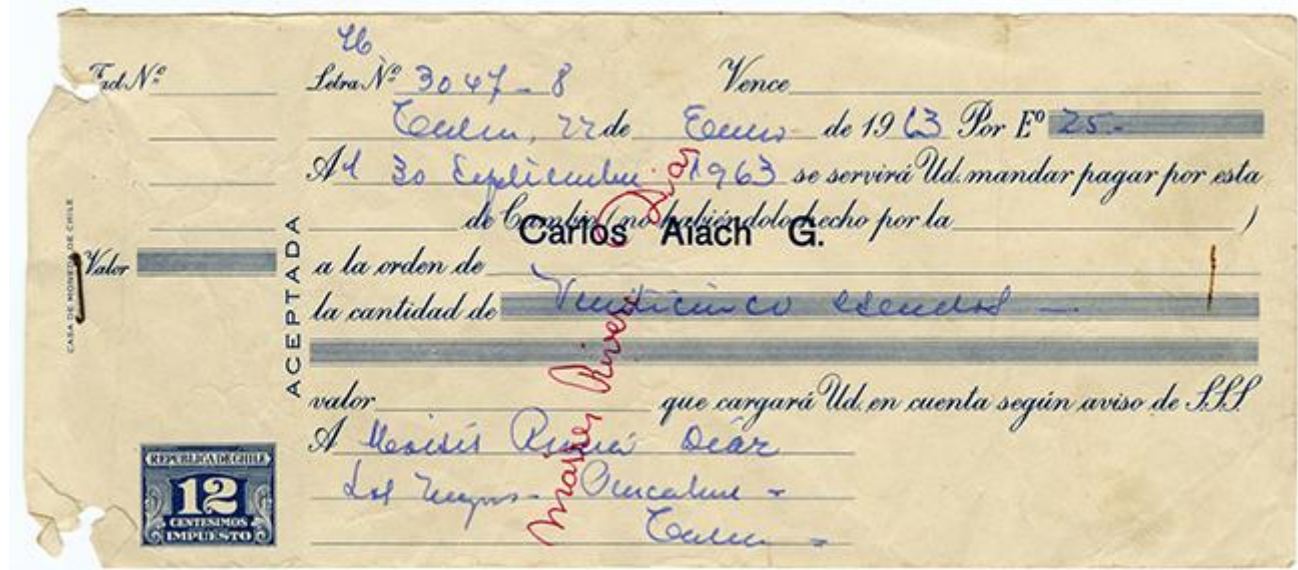 76
Fact Nº Letra Nº 3047-8 Vence
22 de Enero de 1963 Por Eº 25.-
Al 30 Septiembre 1963 se servirá Ud. mandar pagar por esta
de Cambio (no habiéndolo hecho por la )
Carlos Aiach G.
Valor a la orden de
la cantidad de Veinticinco escudos -
valor que cargará Ud. en cuenta según aviso de SSS
A Moisés Rivera Díaz
Los
ACEPTADA
Moises Rivera Diaz
CASA DE MONEDA DE CHILE
REPUBLICA DE CHILE
12
CENTESIMOS
IMPUESTO